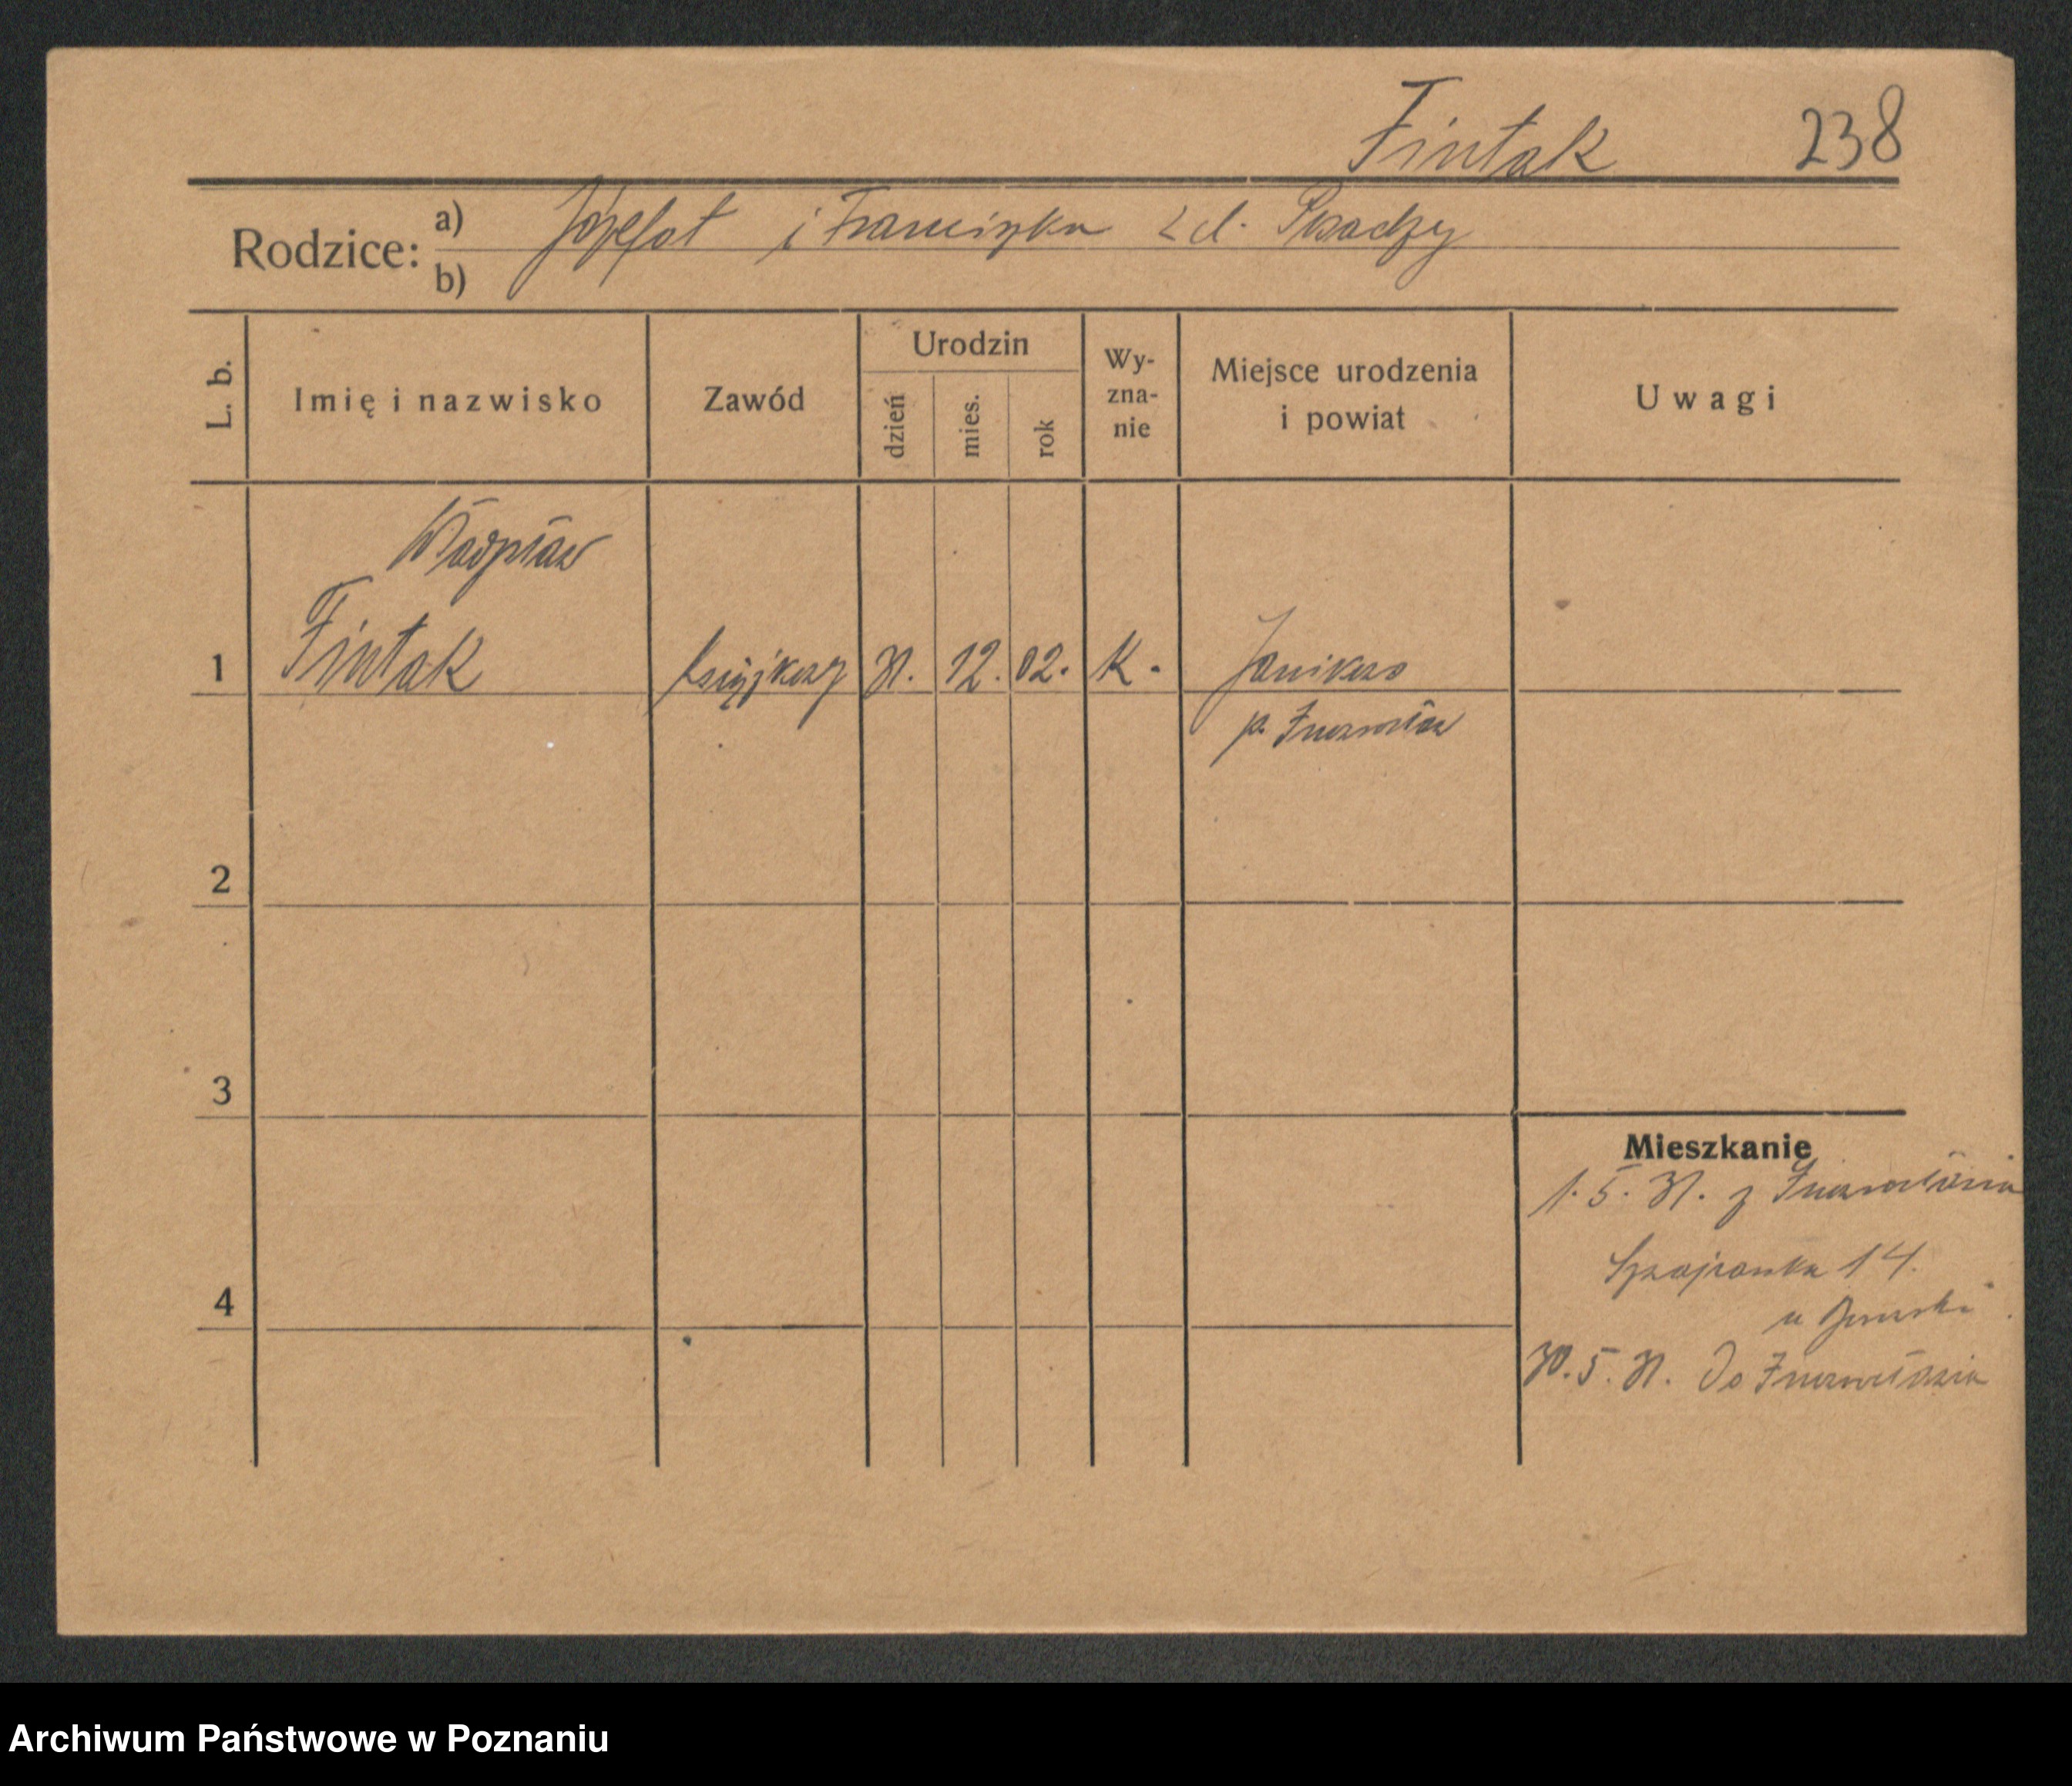 Fintak 238
Rodzice: a) Józefat i Franciszka z d. Posadzy
b)
L. b. Imię i nazwisko Zawód Urodzin dzień mies. rok Wy-zna-nie Miejsce urodzenia i powiat Uwagi
Władysław
1 Fintak książkowy 31. 12. 02. K. Janikowo
p. Inowrocław
2
3
Mieszkanie
1. 5. 31. z Inowrocławia
14.
4
u
30. 5. 31. Do Inowrocławia
Archiwum Państwowe w Poznaniu